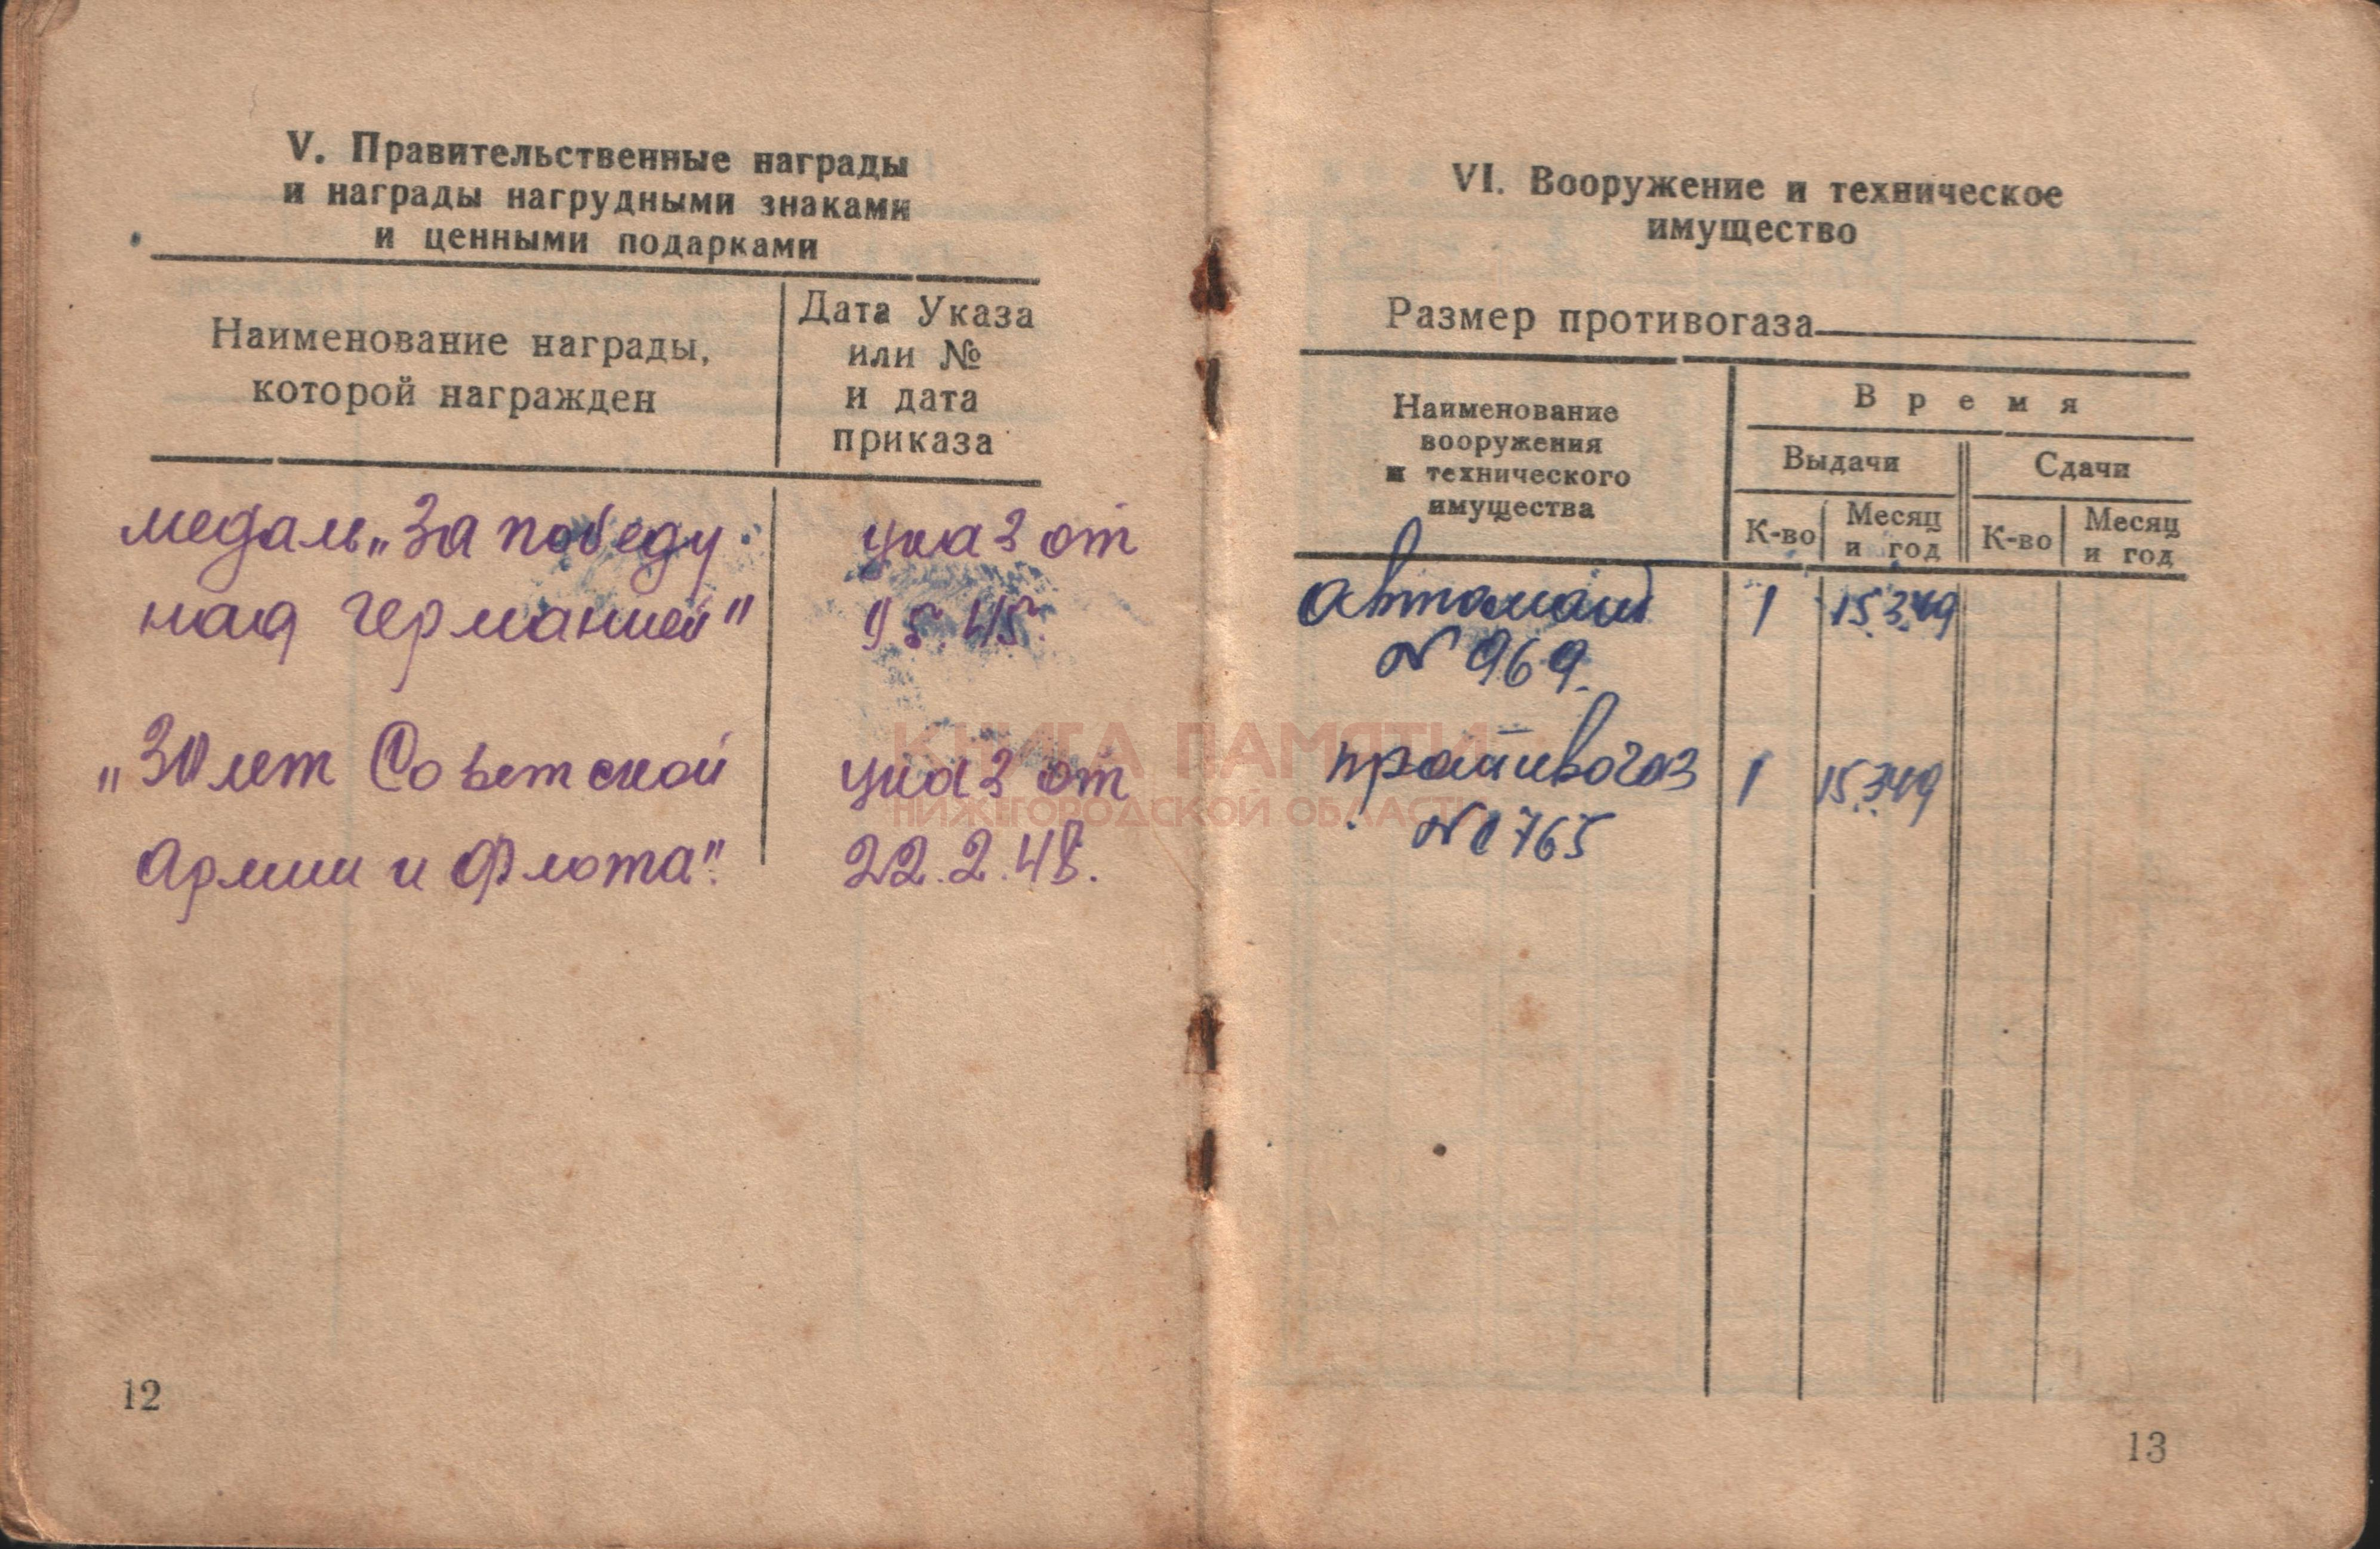 V. Правительственные награды
и награды нагрудными знаками
и ценными подарками
Наименование награды,
которой награжден
Дата Указа
или №
и дата
приказа
медаль „За победу
над Германией"
указ от
9 5 45.
„30 лет Советской
Армии и Флота".
указ от
22.2.48.
12
VI. Вооружение и техническое
имущество
Размер противогаза
Наименование
вооружения
и технического
имущества
Время
Выдачи
Сдачи
К-во
Месяц
и год
К-во
Месяц
и год
автомат 1 15.3.49
N 969.
противогаз 1 15.3.49
N 1765
13
КНИГА ПАМЯТИ
НИЖЕГОРОДСКОЙ ОБЛАСТИ